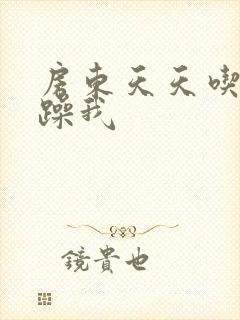 房東天天喫
躁我
鏡貴也